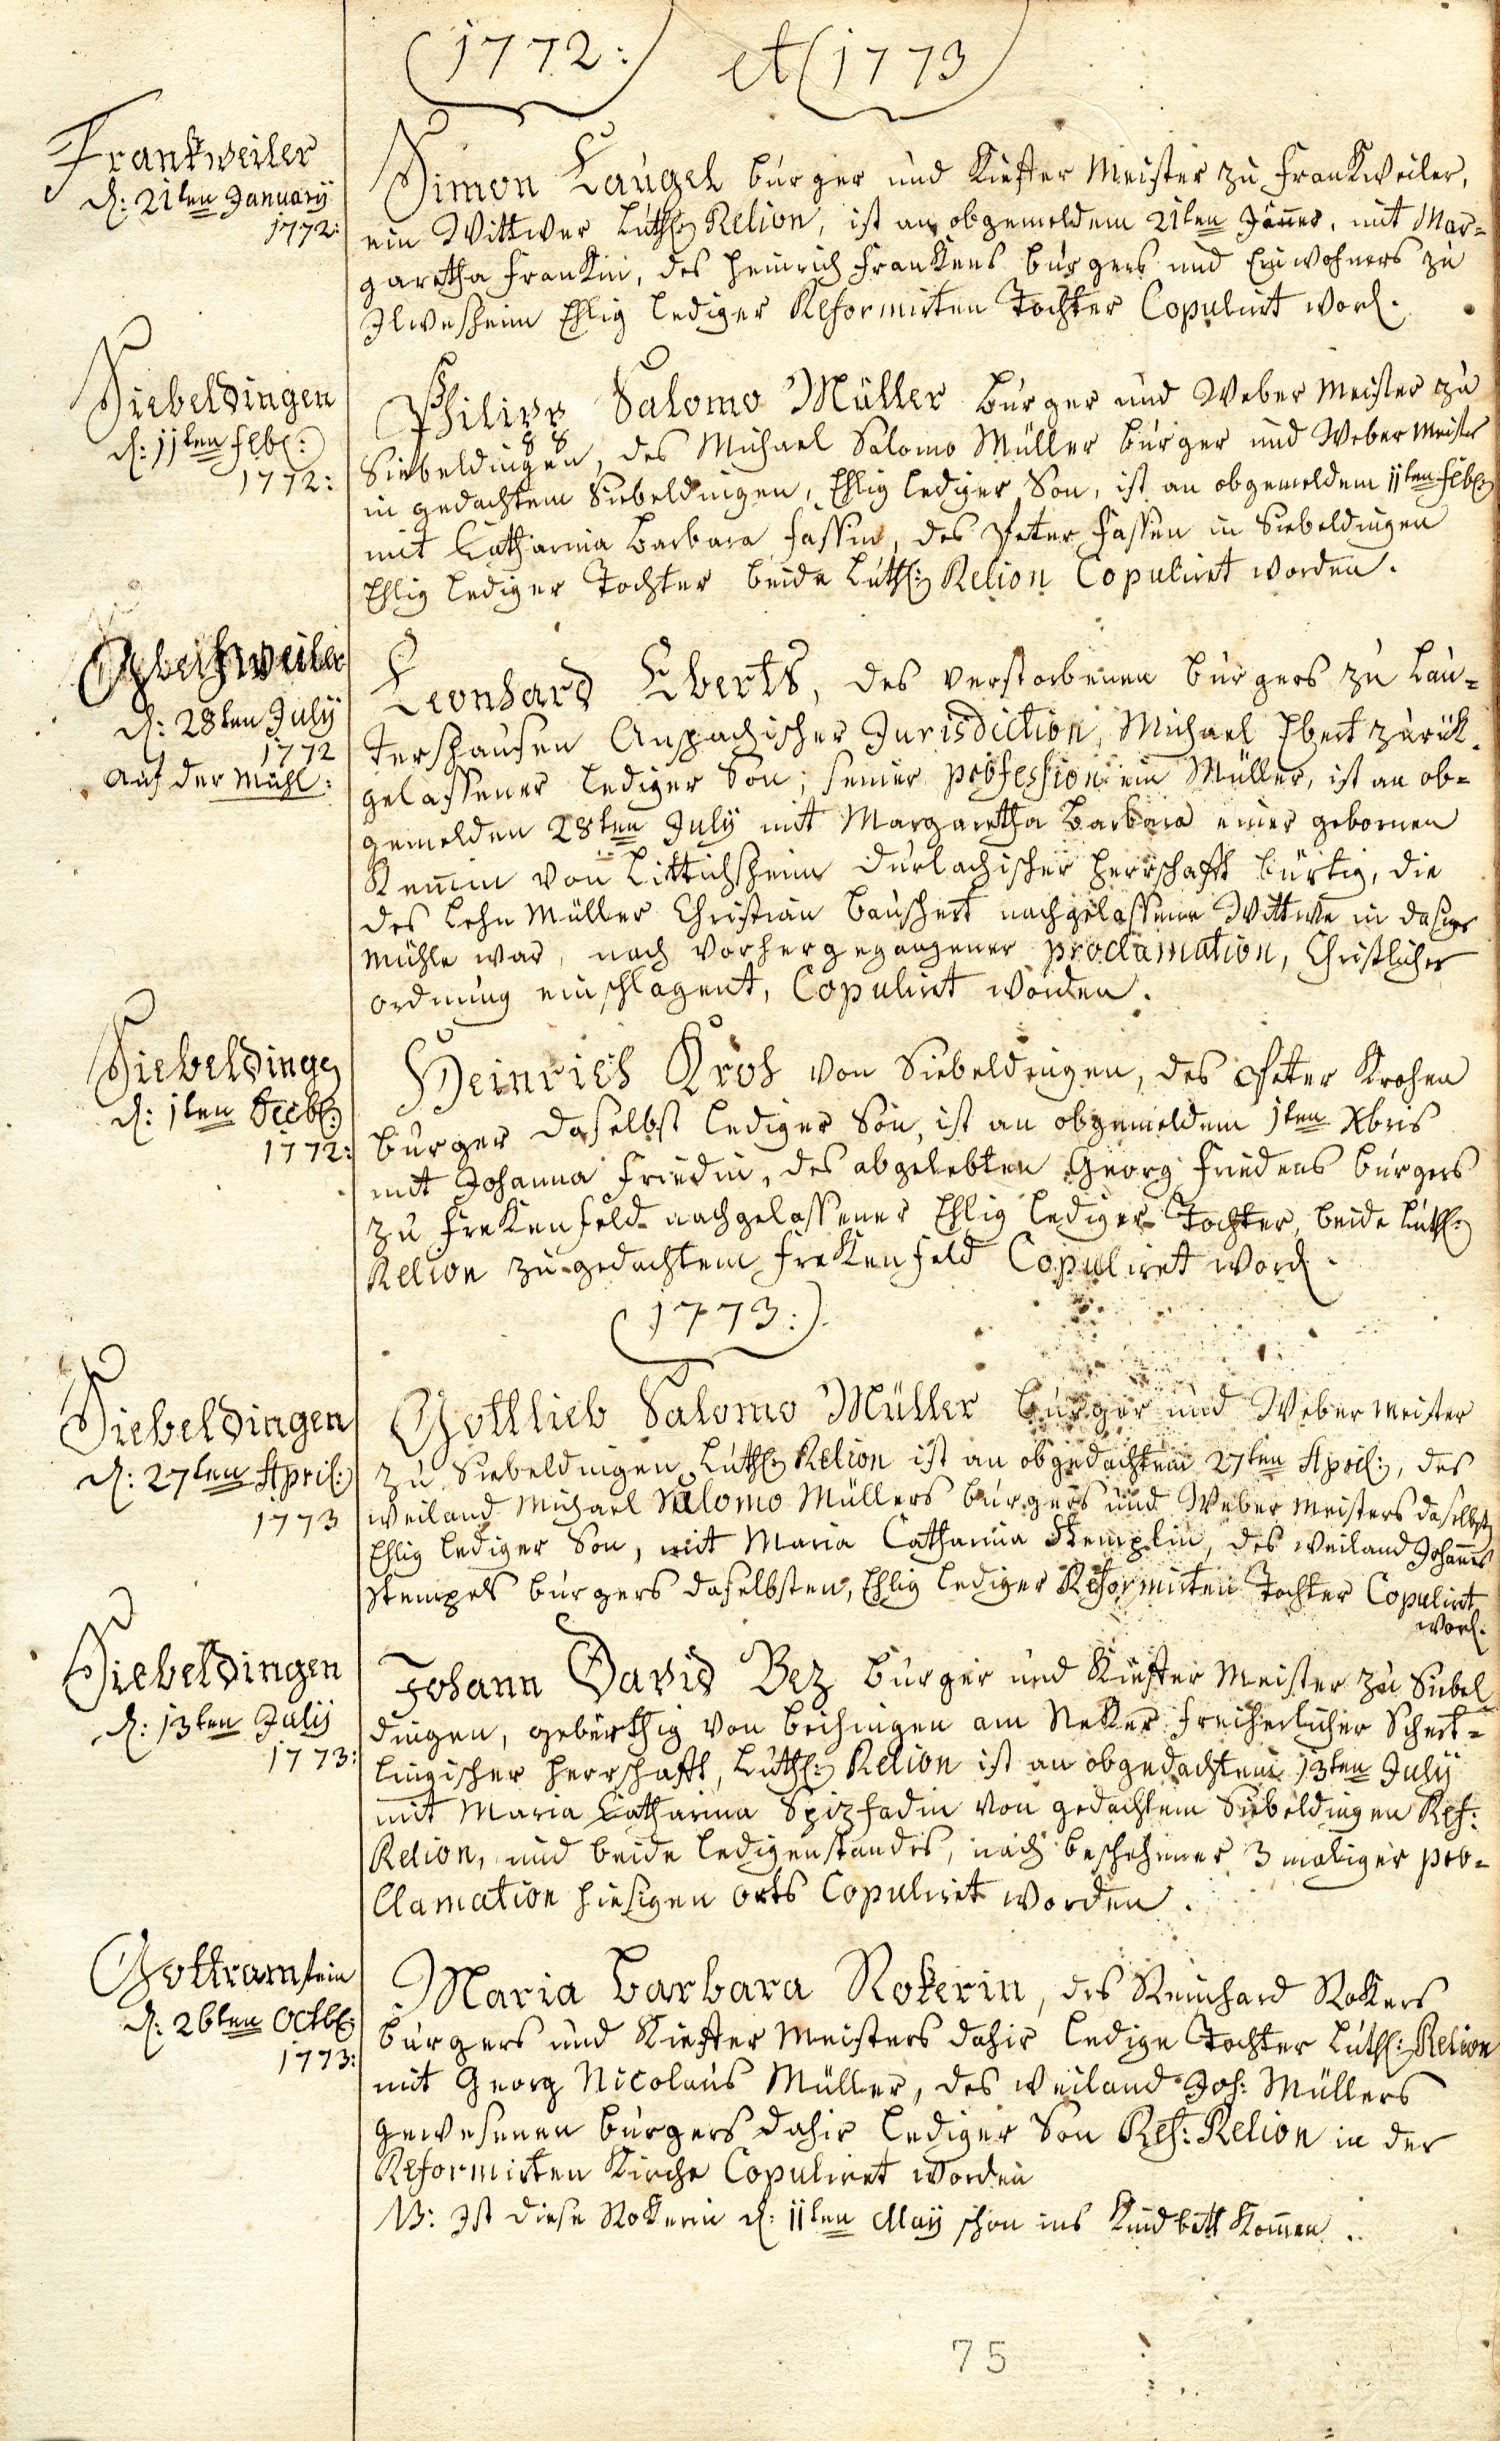 1772: et 1773
Frankweiler
d: 21ten January
1772:
Simon Laugel burger und Kiefter Meister zu Frankweiler,
ein Wittwer Luth: Relion, ist an obgemeldem 21ten Jäner, mit Mar=
garetha Frankin, des Heinrich Frankens burgers und Einwohners zu
Ilwesheim Ehlig lediger Reformirten Tochter Copulirt word.
Siebeldingen
d: 11ten Feb:
1772:
Philipp Salomo Müller burger und Weber Meister zu
Siebeldingen, des Michael Salomo Müller burger und Weber Meister
in gedachtem Siebeldingen, Ehlig lediger Son, ist an obgemeldem 11ten Feb:
mit Catharina Barbara Fassin, des Peter Fassen in Siebeldingen
Ehlig lediger Tochter beide Luth: Relion Copuliret worden.
d: 28ten July
1772
auf der Mühl:
Leonhard Eberts, des verstorbenen burgers zu Lau=
tershausen Anspachischer Jurisdiction, Michael Ebert zurük=
gelassener lediger Son; seiner profession ein Müller, ist an ob=
gemelden 28ten July mit Margaretha Barbara einer gebornen
von Littichsheim Durlachischer Herrschafft bürtig, die
des Lehn Müller Christian Bauschert nachgelassene Wittwe in dasiger
Mühle war, nach vorhergegangener proclamation, Christlicher
ordnung einschlagent, Copuliret worden.
Siebeldingen
d: 1ten Decb:
1772:
Heinrich Kroh von Siebeldingen, des Peter Krohen
burger daselbst lediger Son, ist an obgemeldem 1ten Xbris
mit Johanna Friedin, des abgelebten Georg Friedens burgers
zu Frekenfeld nachgelassener Ehlig lediger Tochter, beide Luth:
Relion zu gedachtem Frekenfeld Copuliret word.
1773:
Siebeldingen
d: 27ten April:
1773
Gottlieb Salomo Müller burger und Weber Meister
zu Siebeldingen Luth: Relion ist an obgedachtem 27ten April:, des
weiland Michael Salomo Müllers burgers und Weber Meisters daselbst
Ehlig lediger Son, mit Maria Catharina Stemplin, des weiland Johannes
Stempels burgers daselbsten, Ehlig lediger Reformirten Tochter Copulirt
word.
Siebeldingen
d: 13ten July
1773:
Johann David Bez burger und Kiefter Meister zu Siebel
dingen, gebürthig von Beihingen am Neker Freiherlicher Schert=
lingischer Herrschafft, Luth: Relion ist an obgedachtem 13ten July
mit Maria Catharina Spizfadin von gedachtem Siebeldingen Ref:
Relion, und beide ledigenstandes, nach beschehener 3 maliger pro=
clamation hiesigen orts Copuliret worden.
Gottramstein
d: 26ten Octb:
1773:
Maria Barbara Rokerin, des Reinhard Rokers
burgers und Kiefter Meisters dahir ledige Tochter Luth: Relion
mit Georg Nicolaus Müller, des weiland Joh: Müllers
gewesenen burgers dahir lediger Son Ref: Relion in der
Reformirten Kirche Copuliret worden
NB: Ist diese Rokerin d: 11ten May schon ins Kindbett komen.
75